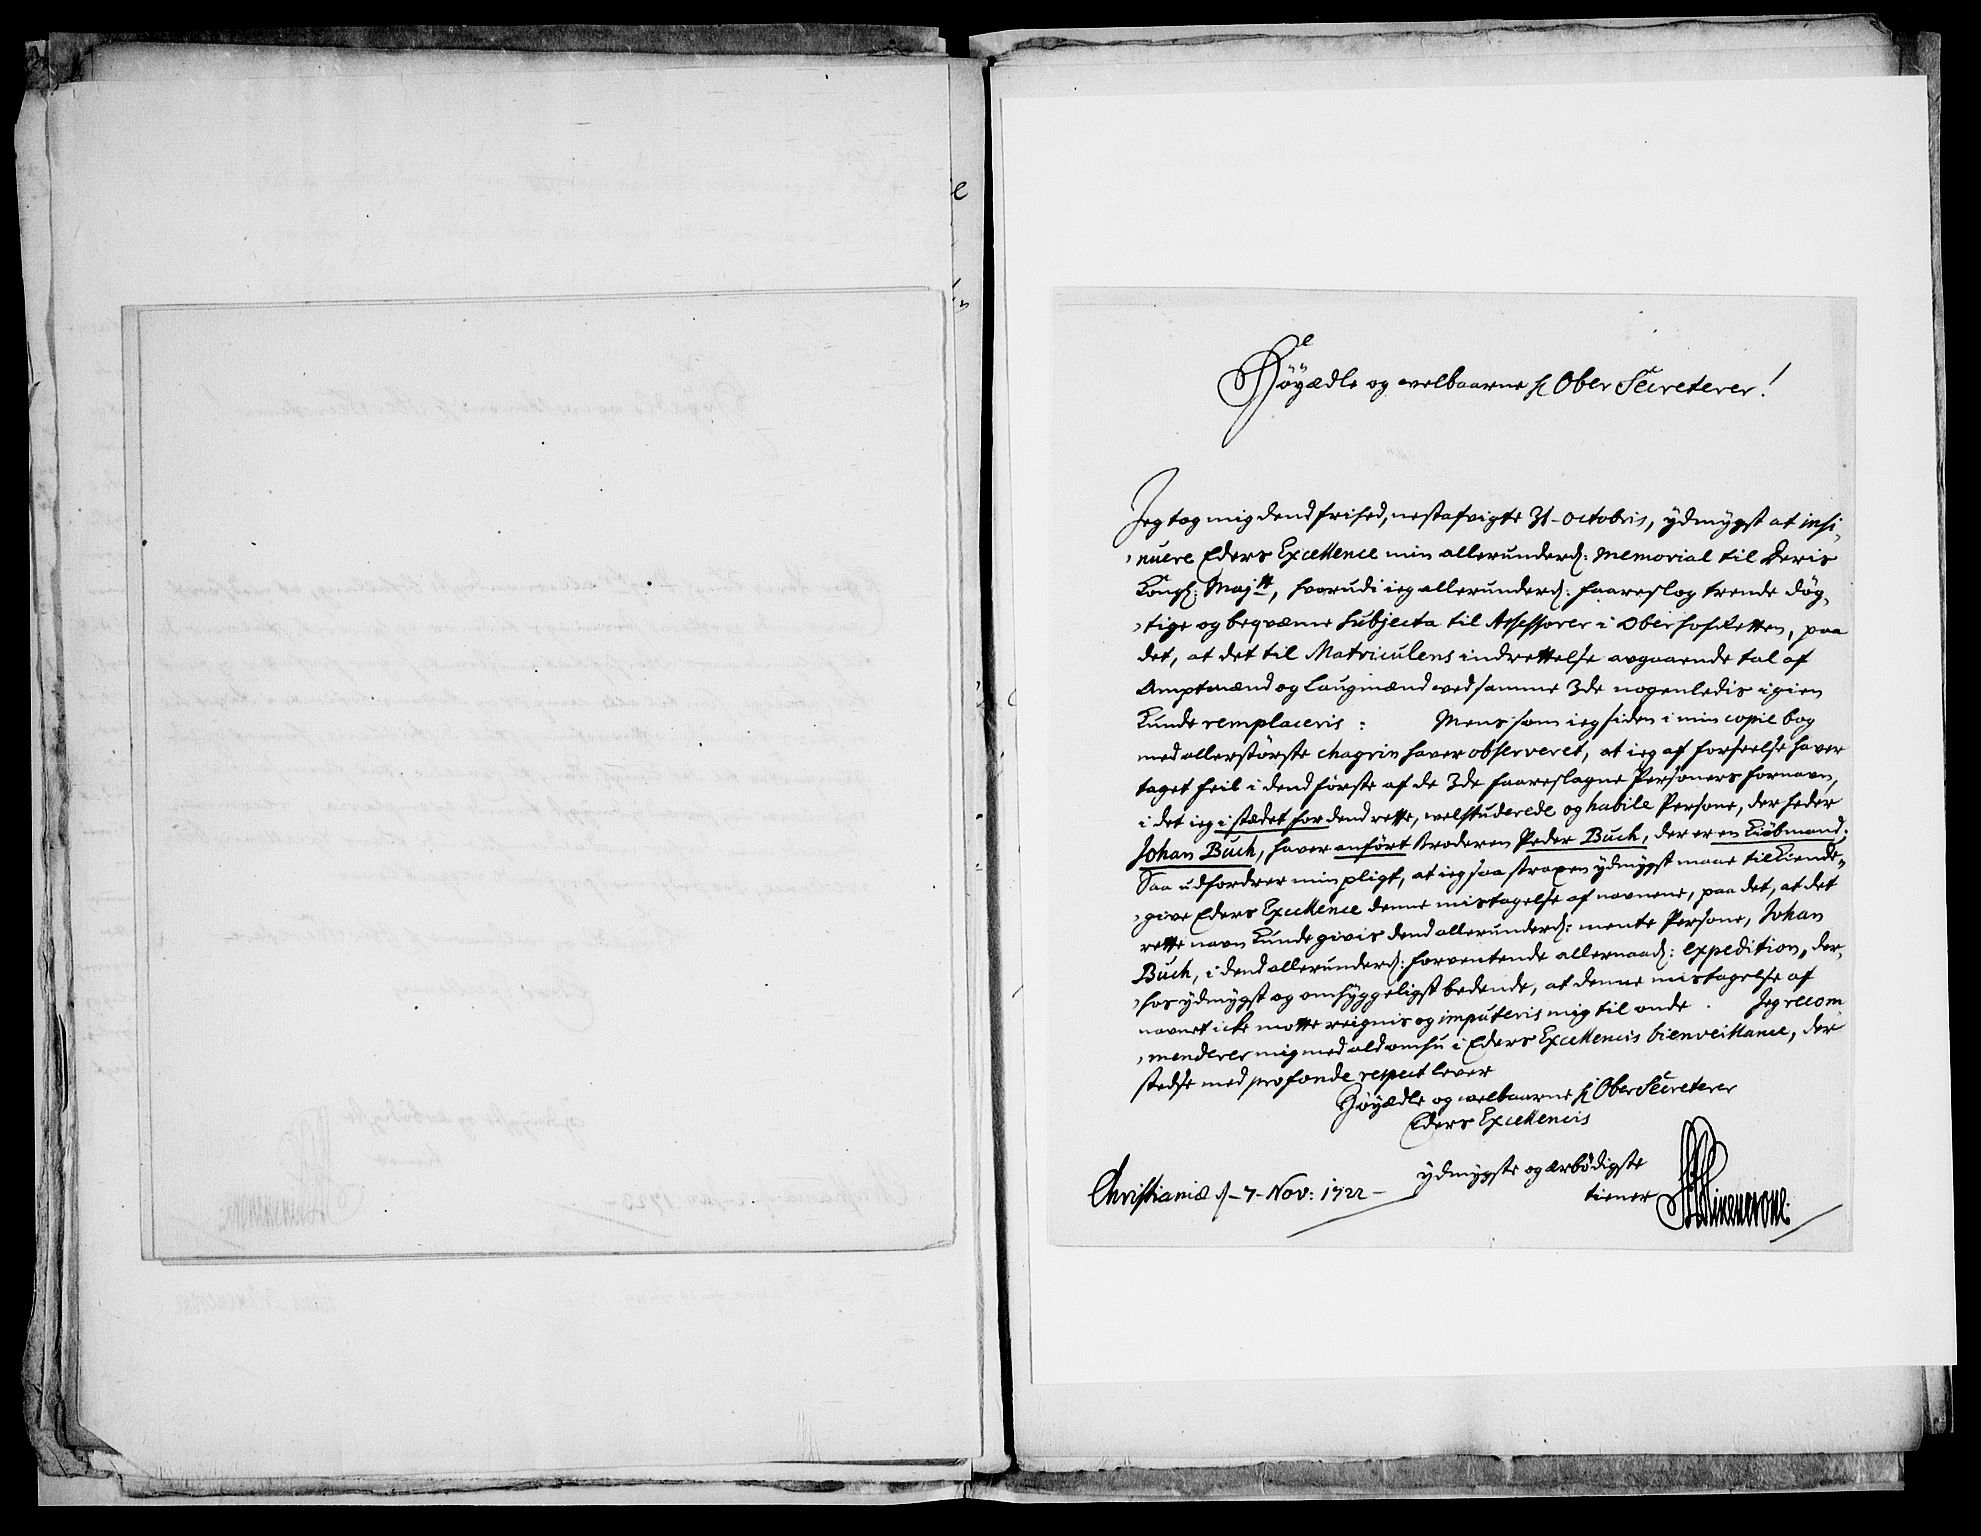 Höÿædle og welbaarne H Ober Secreterer!
Jeg tog mig dend friheed, nestafvigte 31 - octobris, ydmÿgst at insi,
,nuere Eders Excellence min allerunderd: Memorial til Deris
Kongl: Majtt, hvorudi ieg allerunderd: faareslog trende dög,
,tige og beqvæme Subjecta til Assessorer i OberHofRetten, paa
det, at det til Matriculens indrettelse avgaaende tal af
Amptmænd og Laugmænd ved samme 3de nogenledis igien
Kunde remplaceris: Mens som ieg siden i min copie bog
med allerstörste chagrin haver observeret, at ieg af forseelse haver
taget feil i dend förste af de 3de faareslagne Persöners fornavn,
i det ieg i stædet for dend rette, welstuderede og habile Persone, der heder
Johan Buch, haver anfört Broderen Peder Buch, der er en Kiöbmand:
Saa udfordrer min pligt, at ieg saa straxen ydmÿgst maae tilKiende,
,give Eders Excellence denne mistagelse af navnene, paa det, at det
rette navn Kunde givis dend allerunderd: mente Persone, Johan
Buch, i dend allerunderd: forventende allernaad: expedition, der,
,hos ydmÿgst og omhÿggeligst bedende, at denne mistagelse af
navnet icke motte reignis og imputeris mig til onde. Jeg recom
,menderer mig med ald omhu i Eders Excellencis bienveillance, der
stedse med profonde respect lever
Höÿædle og welbaarne H Ober Secreterer
Eders Excellencis
ydmÿgste og ærbödigste
tiener
Christianiæ d - 7 - Nov: 1722 -